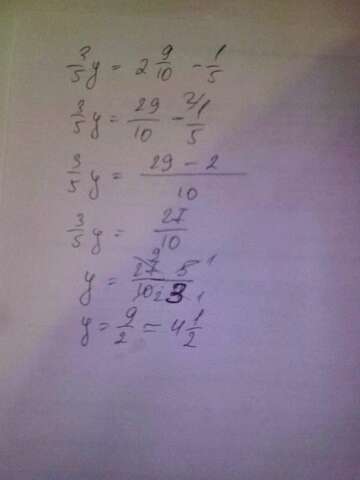 3/5 y = 2 9/10 - 1/5
3/5 y = 29/10 - 2/ 1/5
3/5 y = 29 - 2 / 10
3/5 y = 27/10
y = 27 9 · 5 1 / 10 2 · 3 1
y = 9/2 = 4 1/2